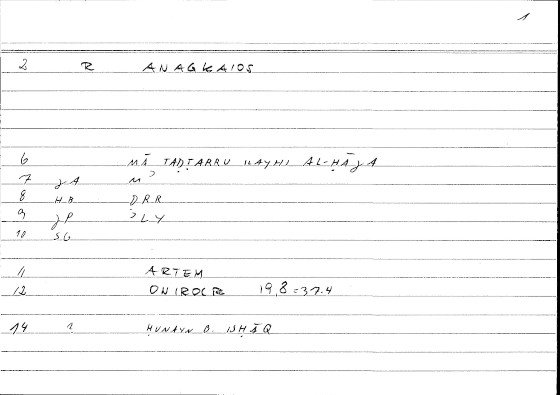 1
2 R ANAGKAIOS
6 MĀ TAḌṬARRU ILAYHI AL-ḤĀǧA
7 JA Mʾ
8 HB ḌRR
9 JP ʾLY
10 SG
11 ARTEM
12 ONIROCR 19,8=37.4
14 ? ḤUNAYN B. ISḤĀQ